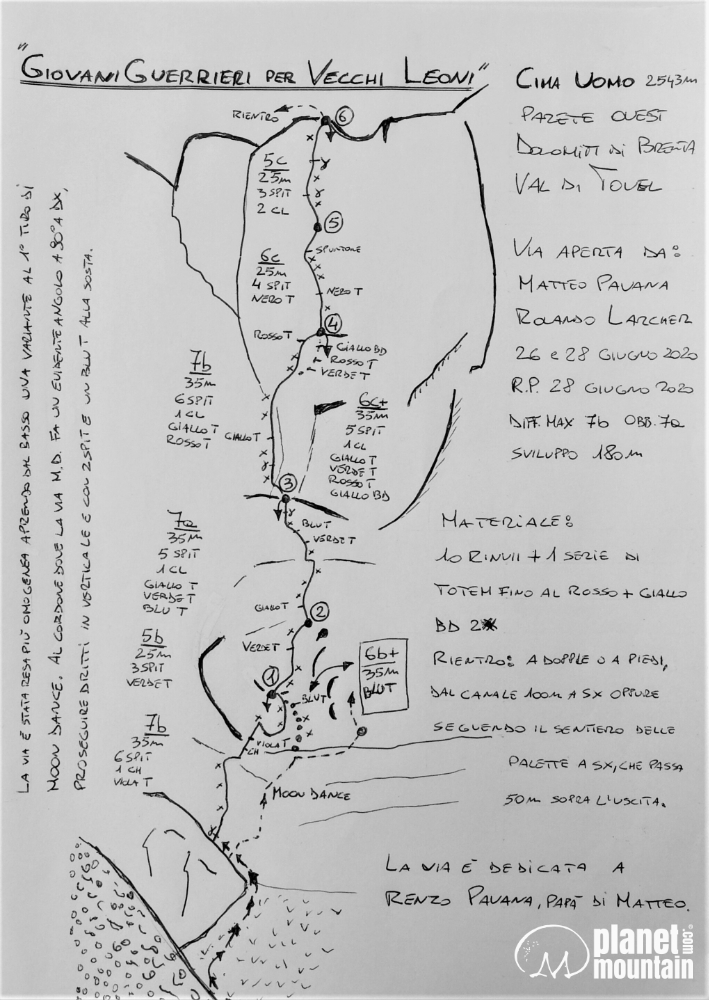 "GIOVANI GUERRIERI PER VECCHI LEONI"
CIMA UOMO 2543m
PARETE OVEST
DOLOMITI DI BRENTA
VAL DI TOVEL
VIA APERTA DA:
MATTEO PAVANA
ROLANDO LARCHER
26 e 28 GIUGNO 2020
R.P. 28 GIUGNO 2020
DIFF. MAX 7b OBB. 7a
SVILUPPO 180m
MATERIALE:
10 RINVII + 1 SERIE DI
TOTEM FINO AL ROSSO + GIALLO
BD 2
RIENTRO: A DOPPLE O A PIEDI,
DAL CANALE 100m A SX OPPURE
SEGUENDO IL SENTIERO DELLE
PALETTE A SX, CHE PASSA
50m SOPRA L'USCITA.
LA VIA È DEDICATA A
RENZO PAVANA, PAPÀ DI MATTEO.
LA VIA È STATA RESA PIÙ OMOGENEA APRENDO DAL BASSO UNA VARIANTE AL 1° TIRO DI
MOON DANCE. AL CORDONE DOVE LA VIA M.D. FA UN EVIDENTE ANGOLO A 90° A DX,
PROSEGUIRE DRITTI IN VERTICALE E CON 2 SPIT E UN BLUT ALLA SOSTA.
RIENTRO
6
5c
25m
3 SPIT
2 CL
5
SPUNTONE
6c
25m
4 SPIT
NERO T
NERO T
4
ROSSO T
GIALLO BD
ROSSO T
VERDE T
7b
35m
6 SPIT
1 CL
GIALLO T
ROSSO T
GIALLO T
6c+
35m
5 SPIT
1 CL
GIALLO T
VERDE T
ROSSO T
GIALLO BD
3
BLU T
VERDE T
7a
35m
5 SPIT
1 CL
GIALLO T
VERDE T
BLU T
GIALLO T
2
5b
25m
3 SPIT
VERDE T
VERDE T
6b+
35m
BLU T
1
BLU T
7b
35m
6 SPIT
1 CH
VIOLA T
VIOLA T
CH
MOON DANCE
planet
mountain
.com